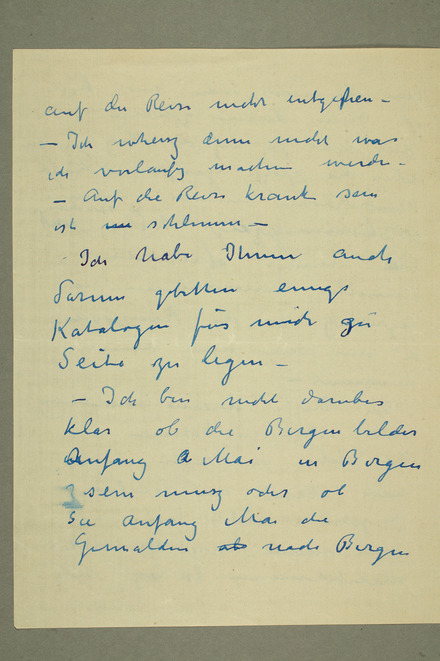 auf die Reise nicht entgehen –
– Ich whersz denn nicht was
ich vorlaufig machen werde –
– Auf die Reise krank sein
ist schlimm –
Ich habe Ihnen auch
darum gebetten einige
Katalogen für mich zu
Seite zu legen –
– Ich bin nicht darüber
klar ob die Bergenbilder
Anfang Mai in Bergen
sein musz oder ob
Sie Anfang Mai die
Gemälden nach Bergen